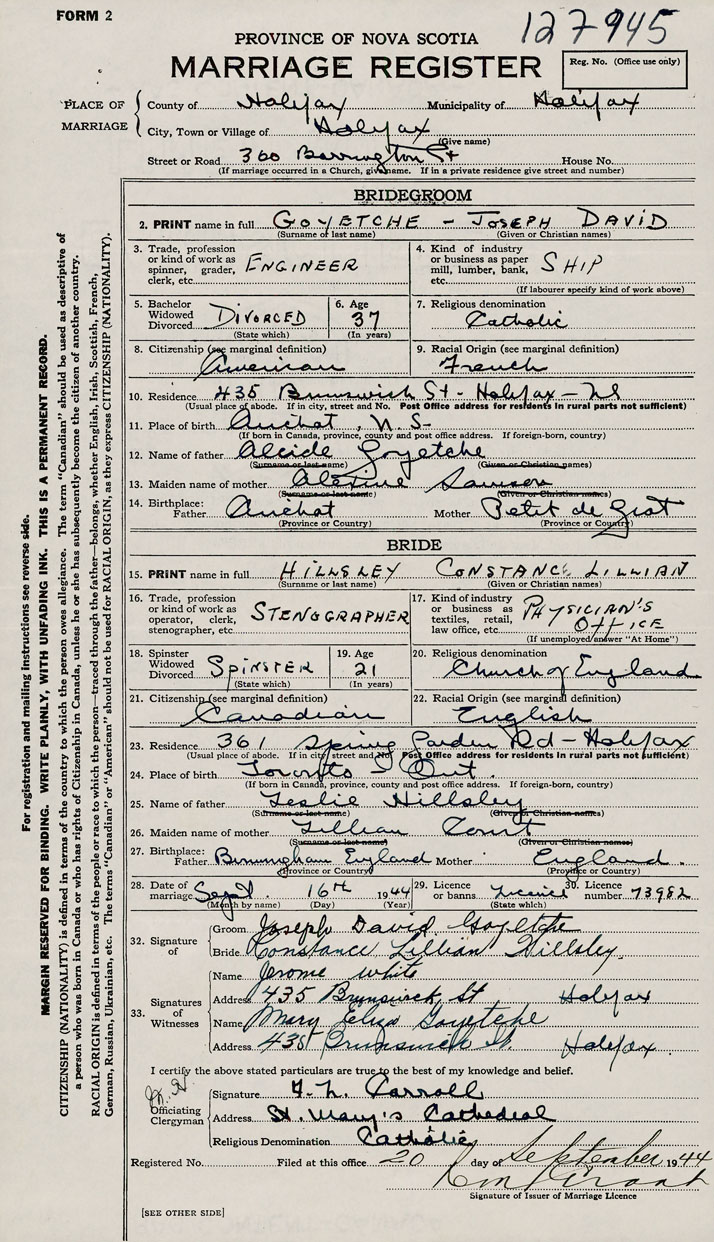 FORM 2
127945
PROVINCE OF NOVA SCOTIA
MARRIAGE REGISTER
Reg. No. (Office use only)
PLACE OF MARRIAGE
County of Halifax Municipality of Halifax
City, Town or Village of Halifax
(Give name)
Street or Road 360 Barrington St House No.
(If marriage occurred in a Church, give name. If in a private residence give street and number)
BRIDEGROOM
2. PRINT name in full GOYETCHE - JOSEPH DAVID
(Surname or last name) (Given or Christian names)
3. Trade, profession or kind of work as spinner, grader, clerk, etc. ENGINEER
4. Kind of industry or business as paper mill, lumber, bank, etc. SHIP
(If labourer specify kind of work above)
5. Bachelor Widowed Divorced DIVORCED
(State which)
6. Age 37
(In years)
7. Religious denomination
Catholic
8. Citizenship (see marginal definition)
American
9. Racial Origin (see marginal definition)
French
10. Residence 435 Brunswick St - Halifax - NS
(Usual place of abode. If in city, street and No. Post Office address for residents in rural parts not sufficient)
11. Place of birth Arichat, N.S-
(If born in Canada, province, county and post office address. If foreign-born, country)
12. Name of father Alcide Goyetche
(Surname or last name) (Given or Christian names)
13. Maiden name of mother Samson
(Surname or last name) (Given or Christian names)
14. Birthplace: Father Arichat Mother Petit de Grat
(Province or Country) (Province or Country)
BRIDE
15. PRINT name in full HILLSLEY CONSTANCE LILLIAN
(Surname or last name) (Given or Christian names)
16. Trade, profession or kind of work as operator, clerk, stenographer, etc. STENOGRAPHER
17. Kind of industry or business as textiles, retail, law office, etc. PHYSICIAN'S OFFICE
(If unemployed answer "At Home")
18. Spinster Widowed Divorced SPINSTER
(State which)
19. Age 21
(In years)
20. Religious denomination
Church of England
21. Citizenship (see marginal definition)
Canadian
22. Racial Origin (see marginal definition)
English
23. Residence 361 Spring Garden Rd - Halifax
(Usual place of abode. If in city street and No. Post Office address for residents in rural parts not sufficient)
24. Place of birth Toronto - Ont.
(If born in Canada, province, county and post office address. If foreign-born, country)
25. Name of father Leslie Hillsley
(Surname or last name) (Given or Christian names)
26. Maiden name of mother Lillian Court
(Surname or last name) (Given or Christian names)
27. Birthplace: Father Birmingham England Mother England.
(Province or Country) (Province or Country)
28. Date of marriage Sept. 16th 1944
(Month by name) (Day) (Year)
29. Licence or banns Licence
(State which)
30. Licence number 73982
32. Signature of
Groom Joseph David Goyetche
Bride Constance Lillian Hillsley.
33. Signatures of Witnesses
Name Jerome White
Address 435 Brunswick St Halifax
Name Mary Eliza Goyetche
Address 435 Brunswick St. Halifax
I certify the above stated particulars are true to the best of my knowledge and belief.
Officiating Clergyman
Signature Carroll
Address St. Mary's Cathedral
Religious Denomination Catholic
Registered No. Filed at this office 20 day of September 1944
Signature of Issuer of Marriage Licence
[SEE OTHER SIDE]
For registration and mailing instructions see reverse side.
MARGIN RESERVED FOR BINDING. WRITE PLAINLY, WITH UNFADING INK. THIS IS A PERMANENT RECORD.
CITIZENSHIP (NATIONALITY) is defined in terms of the country to which the person owes allegiance. The term "Canadian" should be used as descriptive of
a person who was born in Canada or who has rights of Citizenship in Canada, unless he or she has subsequently become the citizen of another country.
RACIAL ORIGIN is defined in terms of the people or race to which the person—traced through the father—belongs, whether English, Irish, Scottish, French,
German, Russian, Ukrainian, etc. The terms "Canadian" or "American" should not be used for RACIAL ORIGIN, as they express CITIZENSHIP (NATIONALITY).